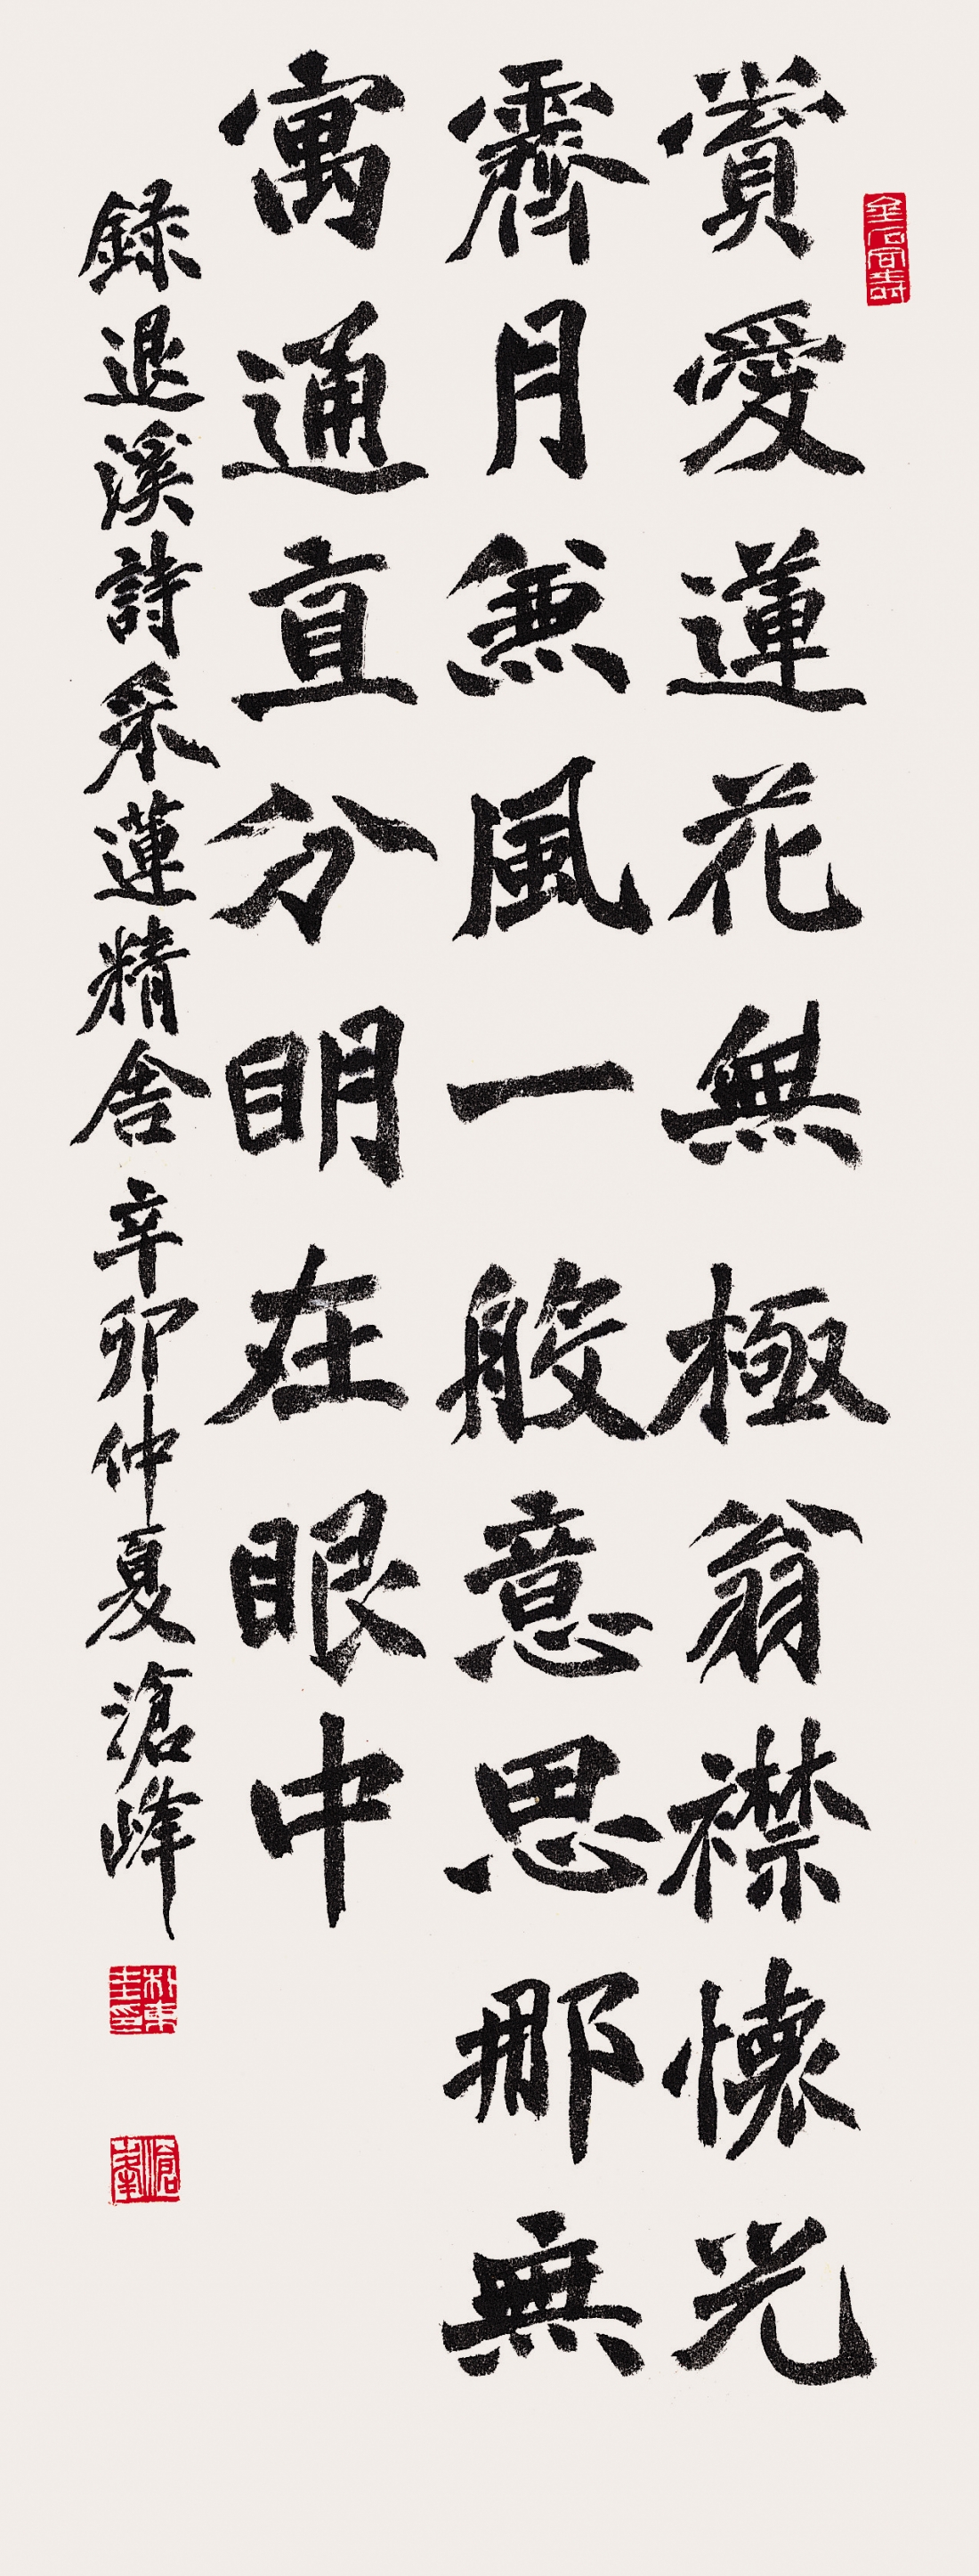 賞愛蓮花無極翁襟懷光
霽月兼風一般意思那無
寓通直分明在眼中
錄退溪詩采蓮精舍辛卯仲夏滄峰
金石同壽
朴東圭印
滄峯